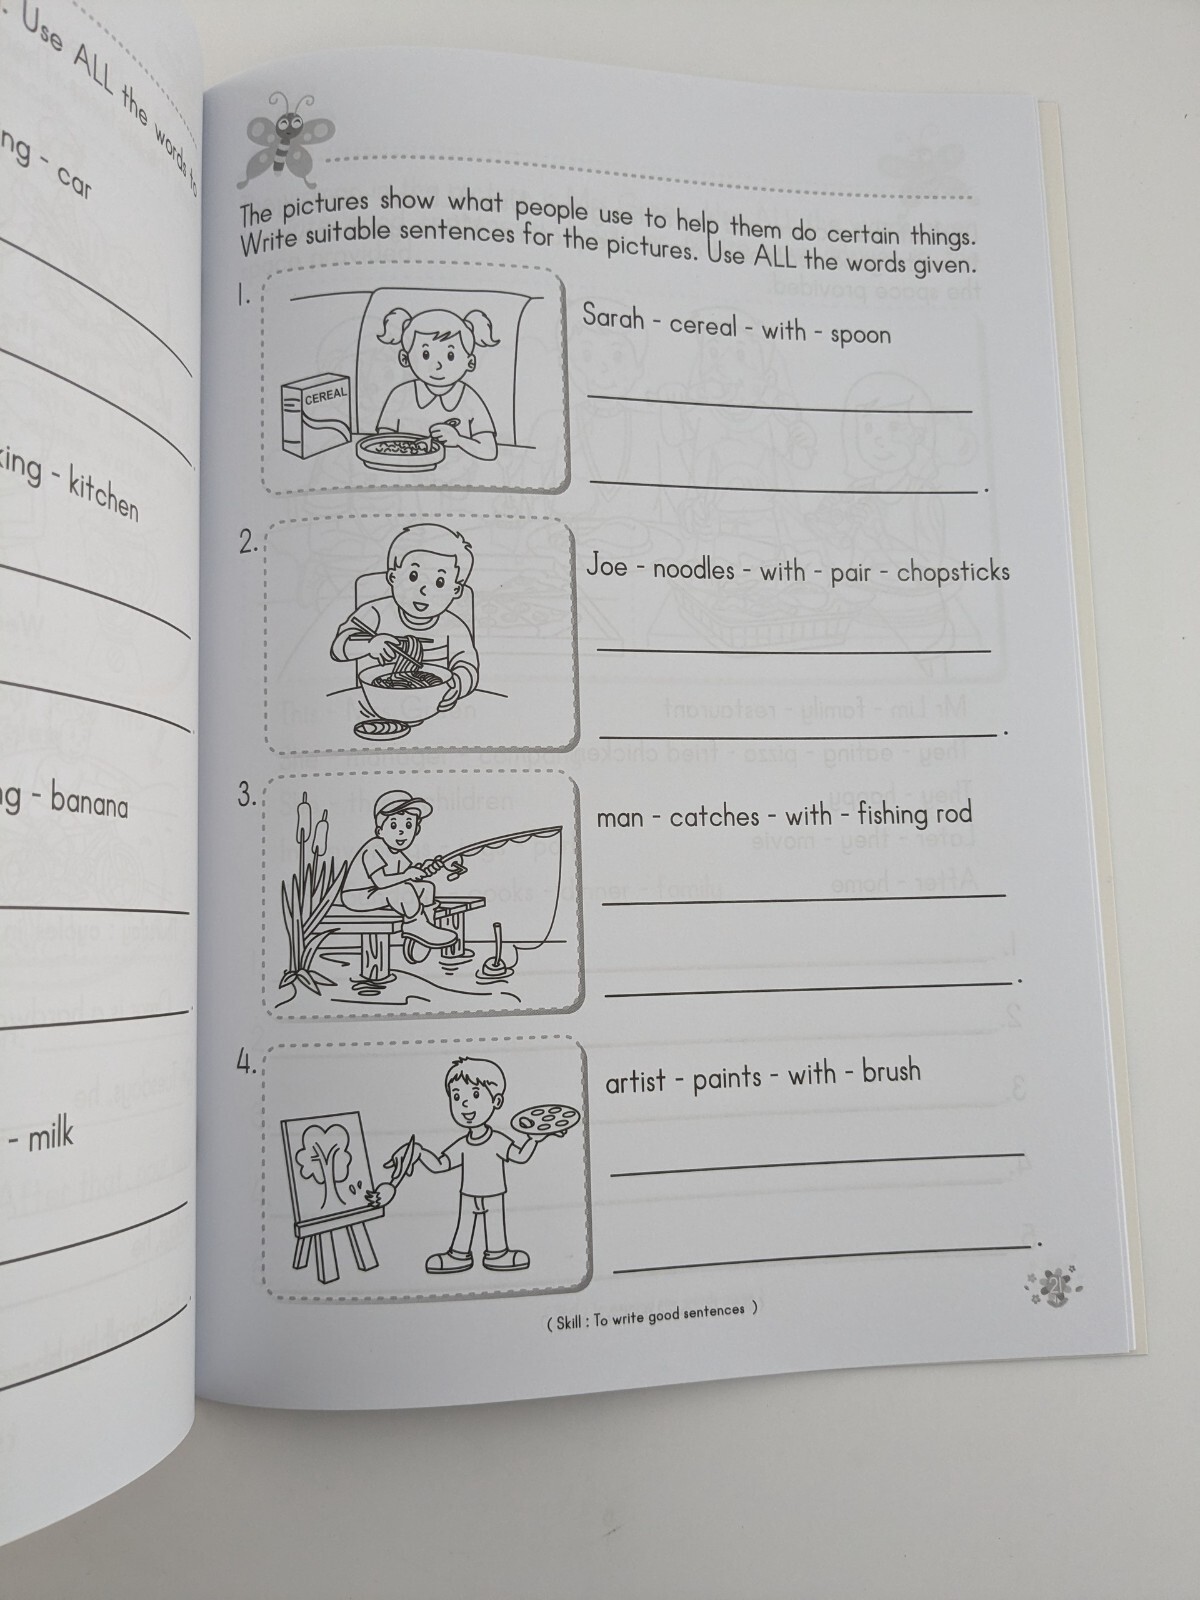 . Use ALL the words to
ng - car
king - kitchen
ng - banana
- milk
The pictures show what people use to help them do certain things.
Write suitable sentences for the pictures. Use ALL the words given.
1.
CEREAL
Sarah - cereal - with - spoon
.
2.
Joe - noodles - with - pair - chopsticks
.
3.
man - catches - with - fishing rod
.
4.
artist - paints - with - brush
.
21
( Skill : To write good sentences )